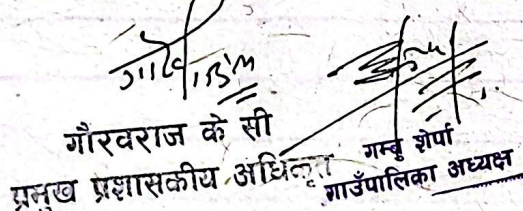 गौरवराज के सी
प्रमुख प्रशासकीय अधिकृत
गम्बु शेर्पा
गाउँपालिका अध्यक्ष